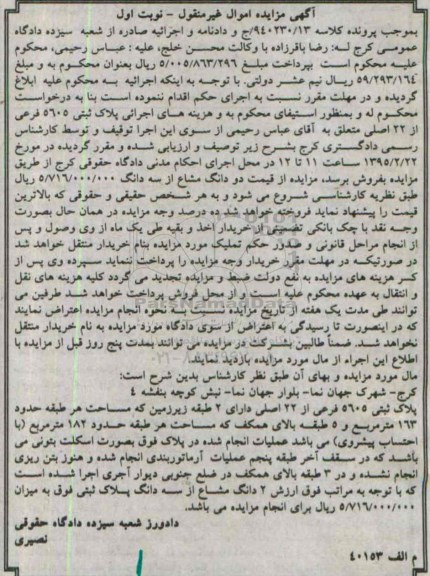 آگهی مزایده اموال غیرمنقول - نوبت اول
بموجب پرونده کلاسه ۹۴۰۲۳۰/۱۳/ج و دادنامه و اجرائیه صادره از شعبه سیزده دادگاه
عمومی کرج له: رضا باقرزاده با وکالت محسن خلج، علیه: عباس رحیمی، محکوم
علیه محکوم است بپرداخت مبلغ ۵/۰۰۵/۸۶۳/۲۹۶ ریال بعنوان محکوم به و مبلغ
۵۹/۲۹۳/۱۶۴ ریال نیم عشر دولتی. با توجه به اینکه اجرائیه به محکوم علیه ابلاغ
گردیده و در مهلت مقرر نسبت به اجرای حکم اقدام ننموده است بنا به درخواست
محکوم له و بمنظور استیفای محکوم به و هزینه های اجرائی پلاک ثبتی ۵۶۰۵ فرعی
از ۲۲ اصلی متعلق به آقای عباس رحیمی از سوی این اجرا توقیف و توسط کارشناس
رسمی دادگستری کرج بشرح زیر توصیف و ارزیابی شده و مقرر گردیده در مورخ
۱۳۹۵/۲/۲۲ ساعت ۱۱ تا ۱۲ در محل اجرای احکام مدنی دادگاه حقوقی کرج از طریق
مزایده بفروش برسد، مزایده از قیمت دو دانگ مشاع از سه دانگ ۵/۷۱۶/۰۰۰/۰۰۰ ریال
طبق نظریه کارشناسی شروع می شود و به هر شخص حقیقی و حقوقی که بالاترین
قیمت را پیشنهاد نماید فروخته خواهد شد. ده درصد وجه مزایده در همان حال بصورت
وجه نقد یا چک بانکی تضمینی از خریدار اخذ و بقیه طی یک ماه از وی وصول و پس
از انجام مراحل قانونی و صدور حکم تملیک مورد مزایده بنام خریدار منتقل خواهد شد
در صورتیکه در مهلت مقرر خریدار وجه مزایده را پرداخت ننماید سپرده وی پس از
کسر هزینه های مزایده به نفع دولت ضبط و مزایده تجدید می گردد کلیه هزینه های نقل
و انتقال به عهده محکوم علیه است و از محل فروش پرداخت خواهد شد طرفین می
توانند طی مدت یک هفته از تاریخ مزایده نسبت به نحوه انجام مزایده اعتراض نمایند
که در اینصورت تا رسیدگی به اعتراض از سوی دادگاه مورد مزایده به نام خریدار منتقل
نخواهد شد. ضمناً طالبین بشرکت در مزایده می توانند بمدت پنج روز قبل از مزایده با
اطلاع این اجراء از مال مورد مزایده بازدید نمایند.
مال مورد مزایده و بهای آن طبق نظر کارشناس بدین شرح است:
کرج- شهرک جهان نما- بلوار جهان نما- نبش کوچه بنفشه ۴
پلاک ثبتی ۵۶۰۵ فرعی از ۲۲ اصلی دارای ۲ طبقه زیرزمین که مساحت هر طبقه حدود
۱۶۳ مترمربع و ۵ طبقه بالای همکف که مساحت هر طبقه حدود ۱۸۲ مترمربع (با
احتساب پیشروی) می باشد عملیات انجام شده در پلاک فوق بصورت اسکلت بتونی می
باشد که در سقف آخر طبقه پنجم عملیات آرماتوربندی انجام شده و هنوز بتن ریزی
انجام نشده و در ۳ طبقه بالای همکف در ضلع جنوبی دیوار آجری اجرا شده است
که با توجه به مراتب فوق ارزش ۲ دانگ مشاع از سه دانگ پلاک ثبتی فوق به میزان
۵/۷۱۶/۰۰۰/۰۰۰ ریال برای انجام مزایده می باشد.
دادورز شعبه سیزده دادگاه حقوقی
نصیری
م الف ۴۰۱۵۳